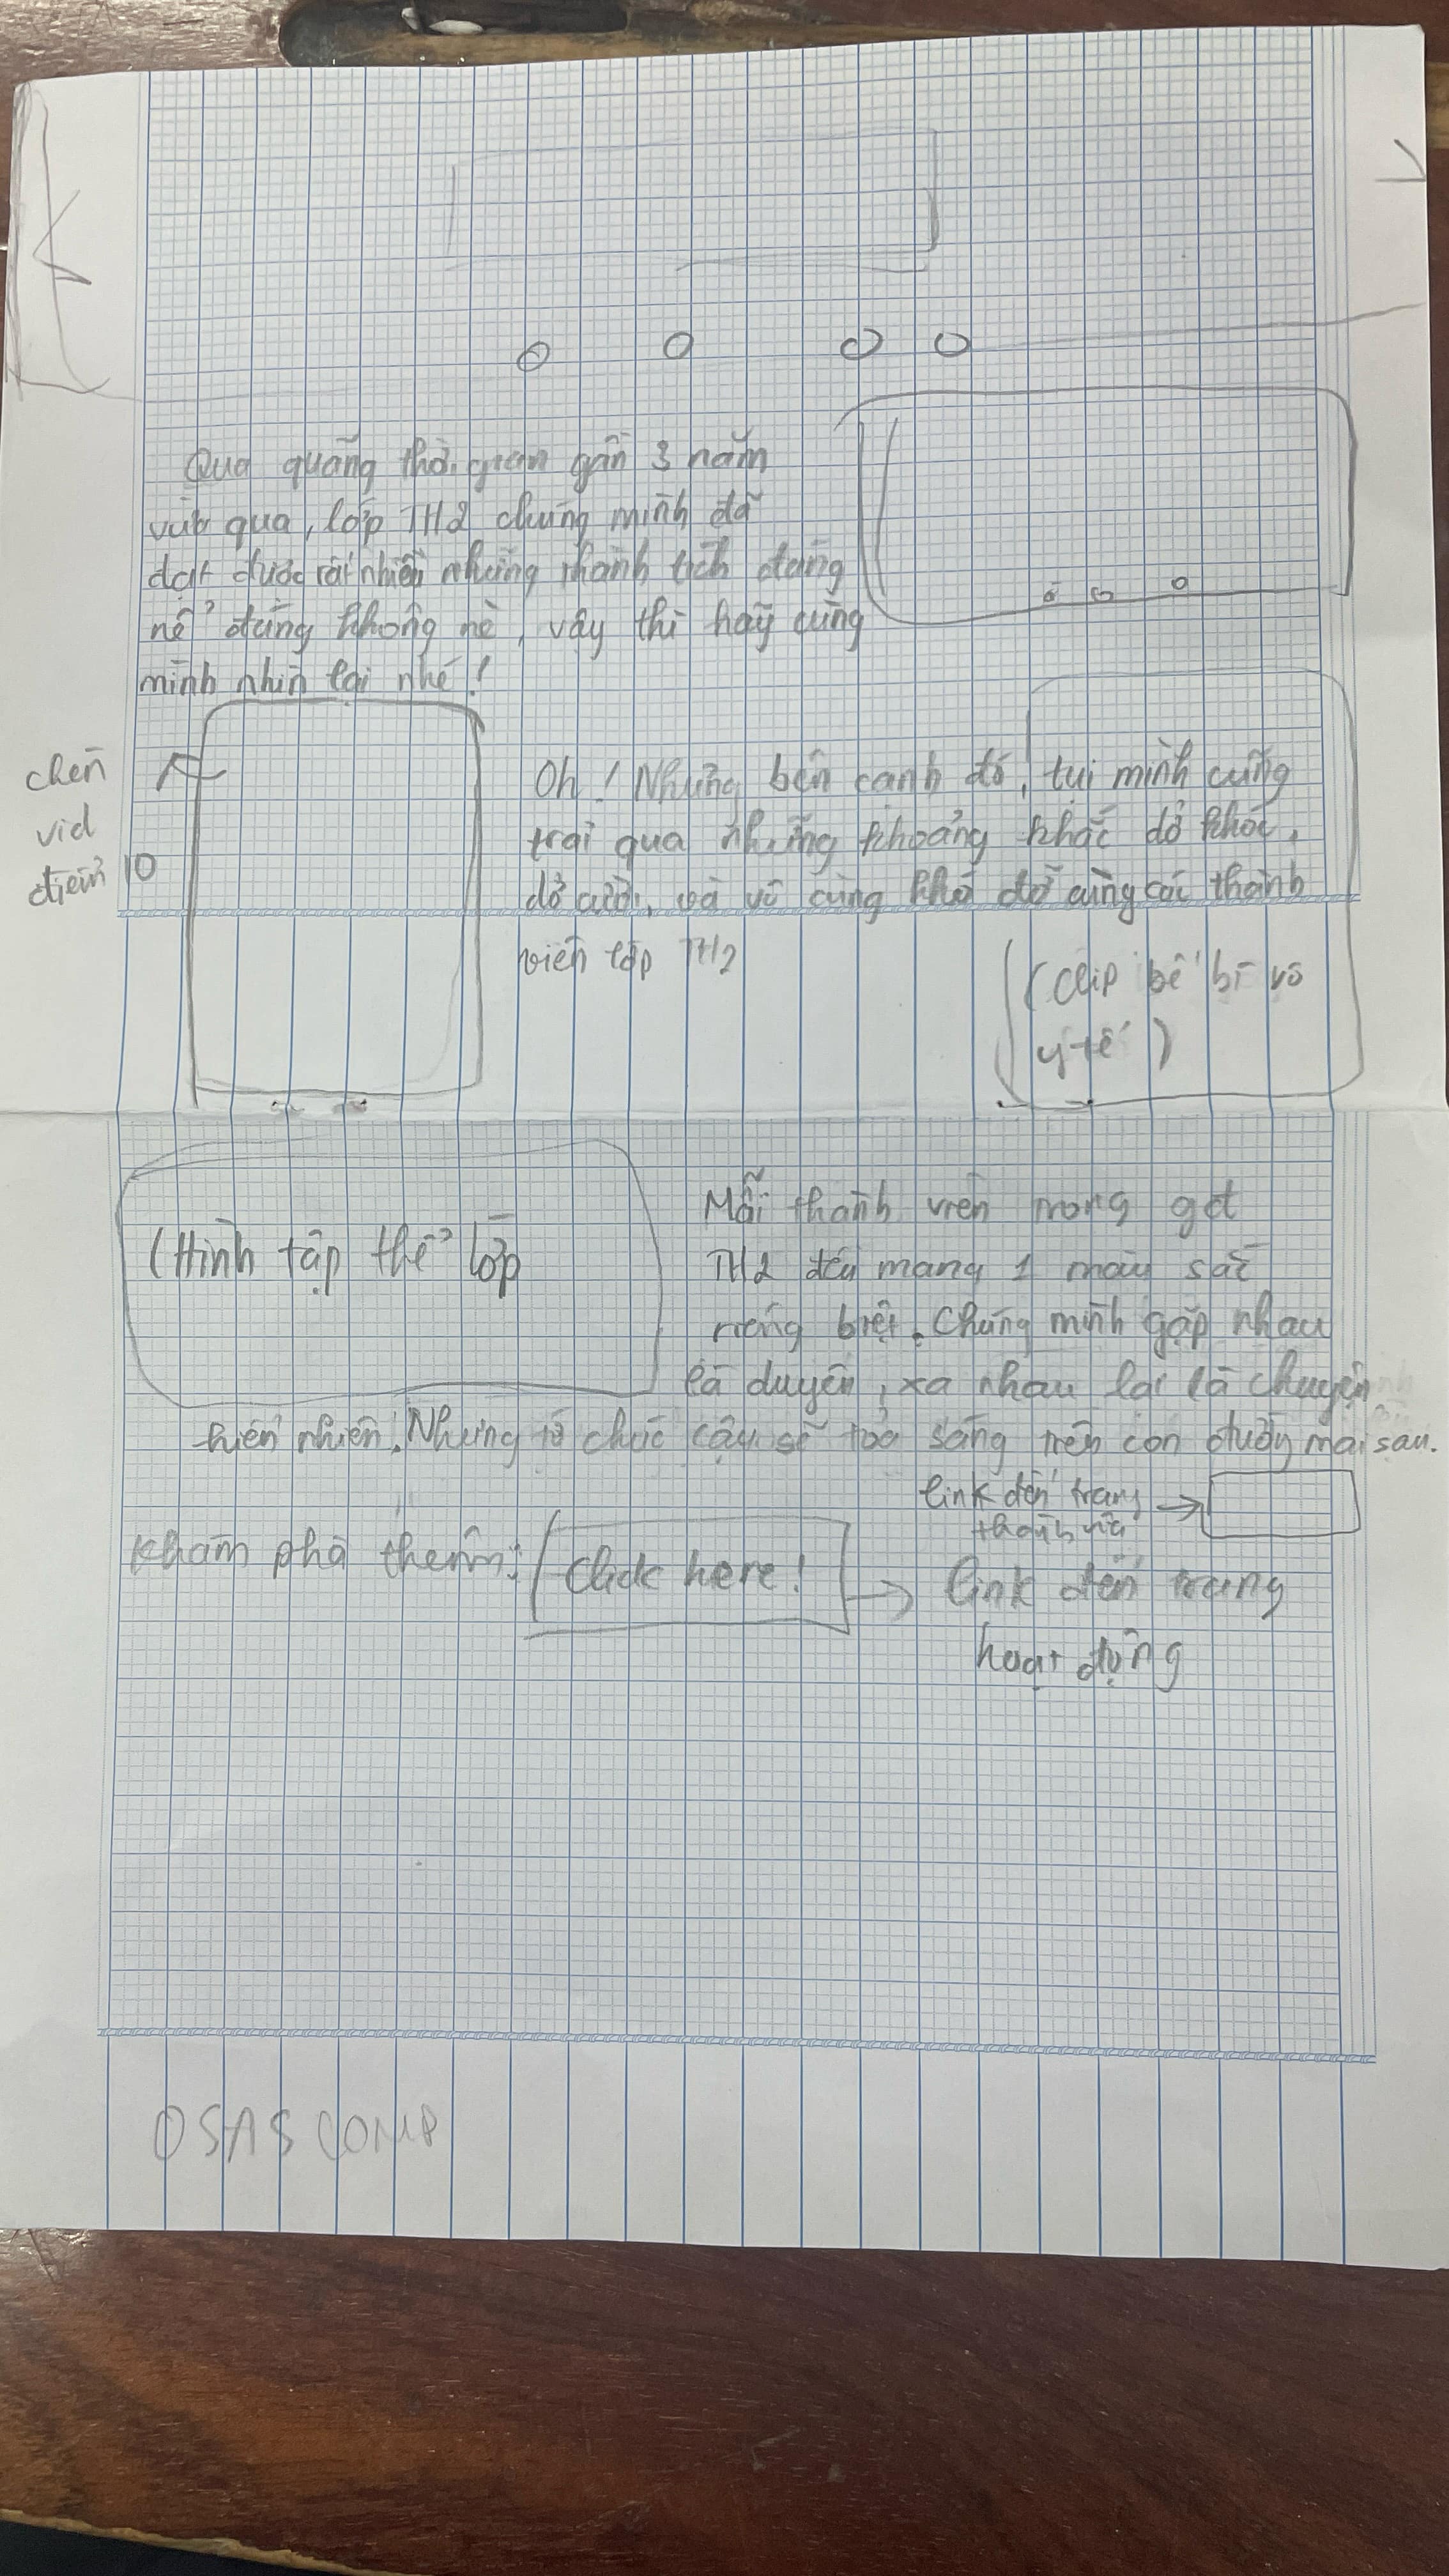 Qua quãng thời gian gần 3 năm
vừa qua, lớp TH2 chúng mình đã
đạt được rất nhiều những thành tích đáng
nể đúng không nè, vậy thì hãy cùng
mình nhìn lại nhé!
chèn
vid
điểm 10
Oh! Nhưng bên cạnh đó, tụi mình cũng
trải qua những khoảng khắc dở khóc,
dở cười, và vô cùng khó đỡ cùng các thành
viên lớp TH2
(Clip bế bì vô
y tế)
(Hình tập thể lớp
Mỗi thành viên trong
TH2 đều mang 1 màu sắc
riêng biệt. Chúng mình gặp nhau
là duyên, xa nhau lại là chuyện
hiển nhiên. Nhưng chúc cậu sẽ toả sáng trên con đường mai sau.
link đến trang
thành
Khám phá thêm: Click here!
link đến trang
hoạt động
OSASCOMP